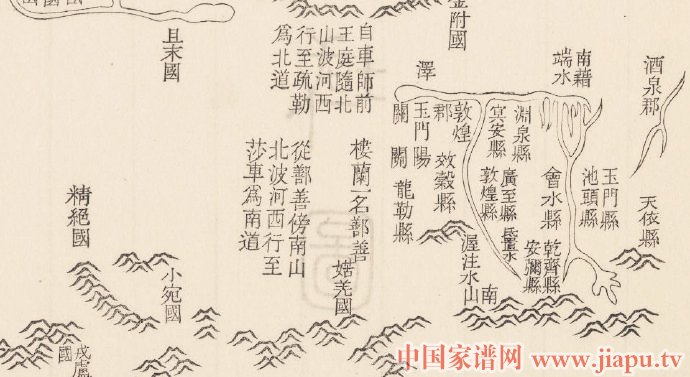 酒泉郡
天依縣
玉門縣
池頭縣
南藉
端水
會水縣
乾齊縣
安彌縣
淵泉縣
冥安縣
廣至縣
敦煌縣
氐置水
南
山
渥洼水
敦煌
郡
效穀縣
龍勒縣
玉門陽
關
關
澤
金附國
自車師前
王庭隨北
山波河西
行至疏勒
爲北道
樓蘭一名鄯善
從鄯善傍南山
北波河西行至
莎車爲南道
婼羌國
且末國
小宛國
精絕國
戎盧
國
中国家谱网 www.jiapu.tv